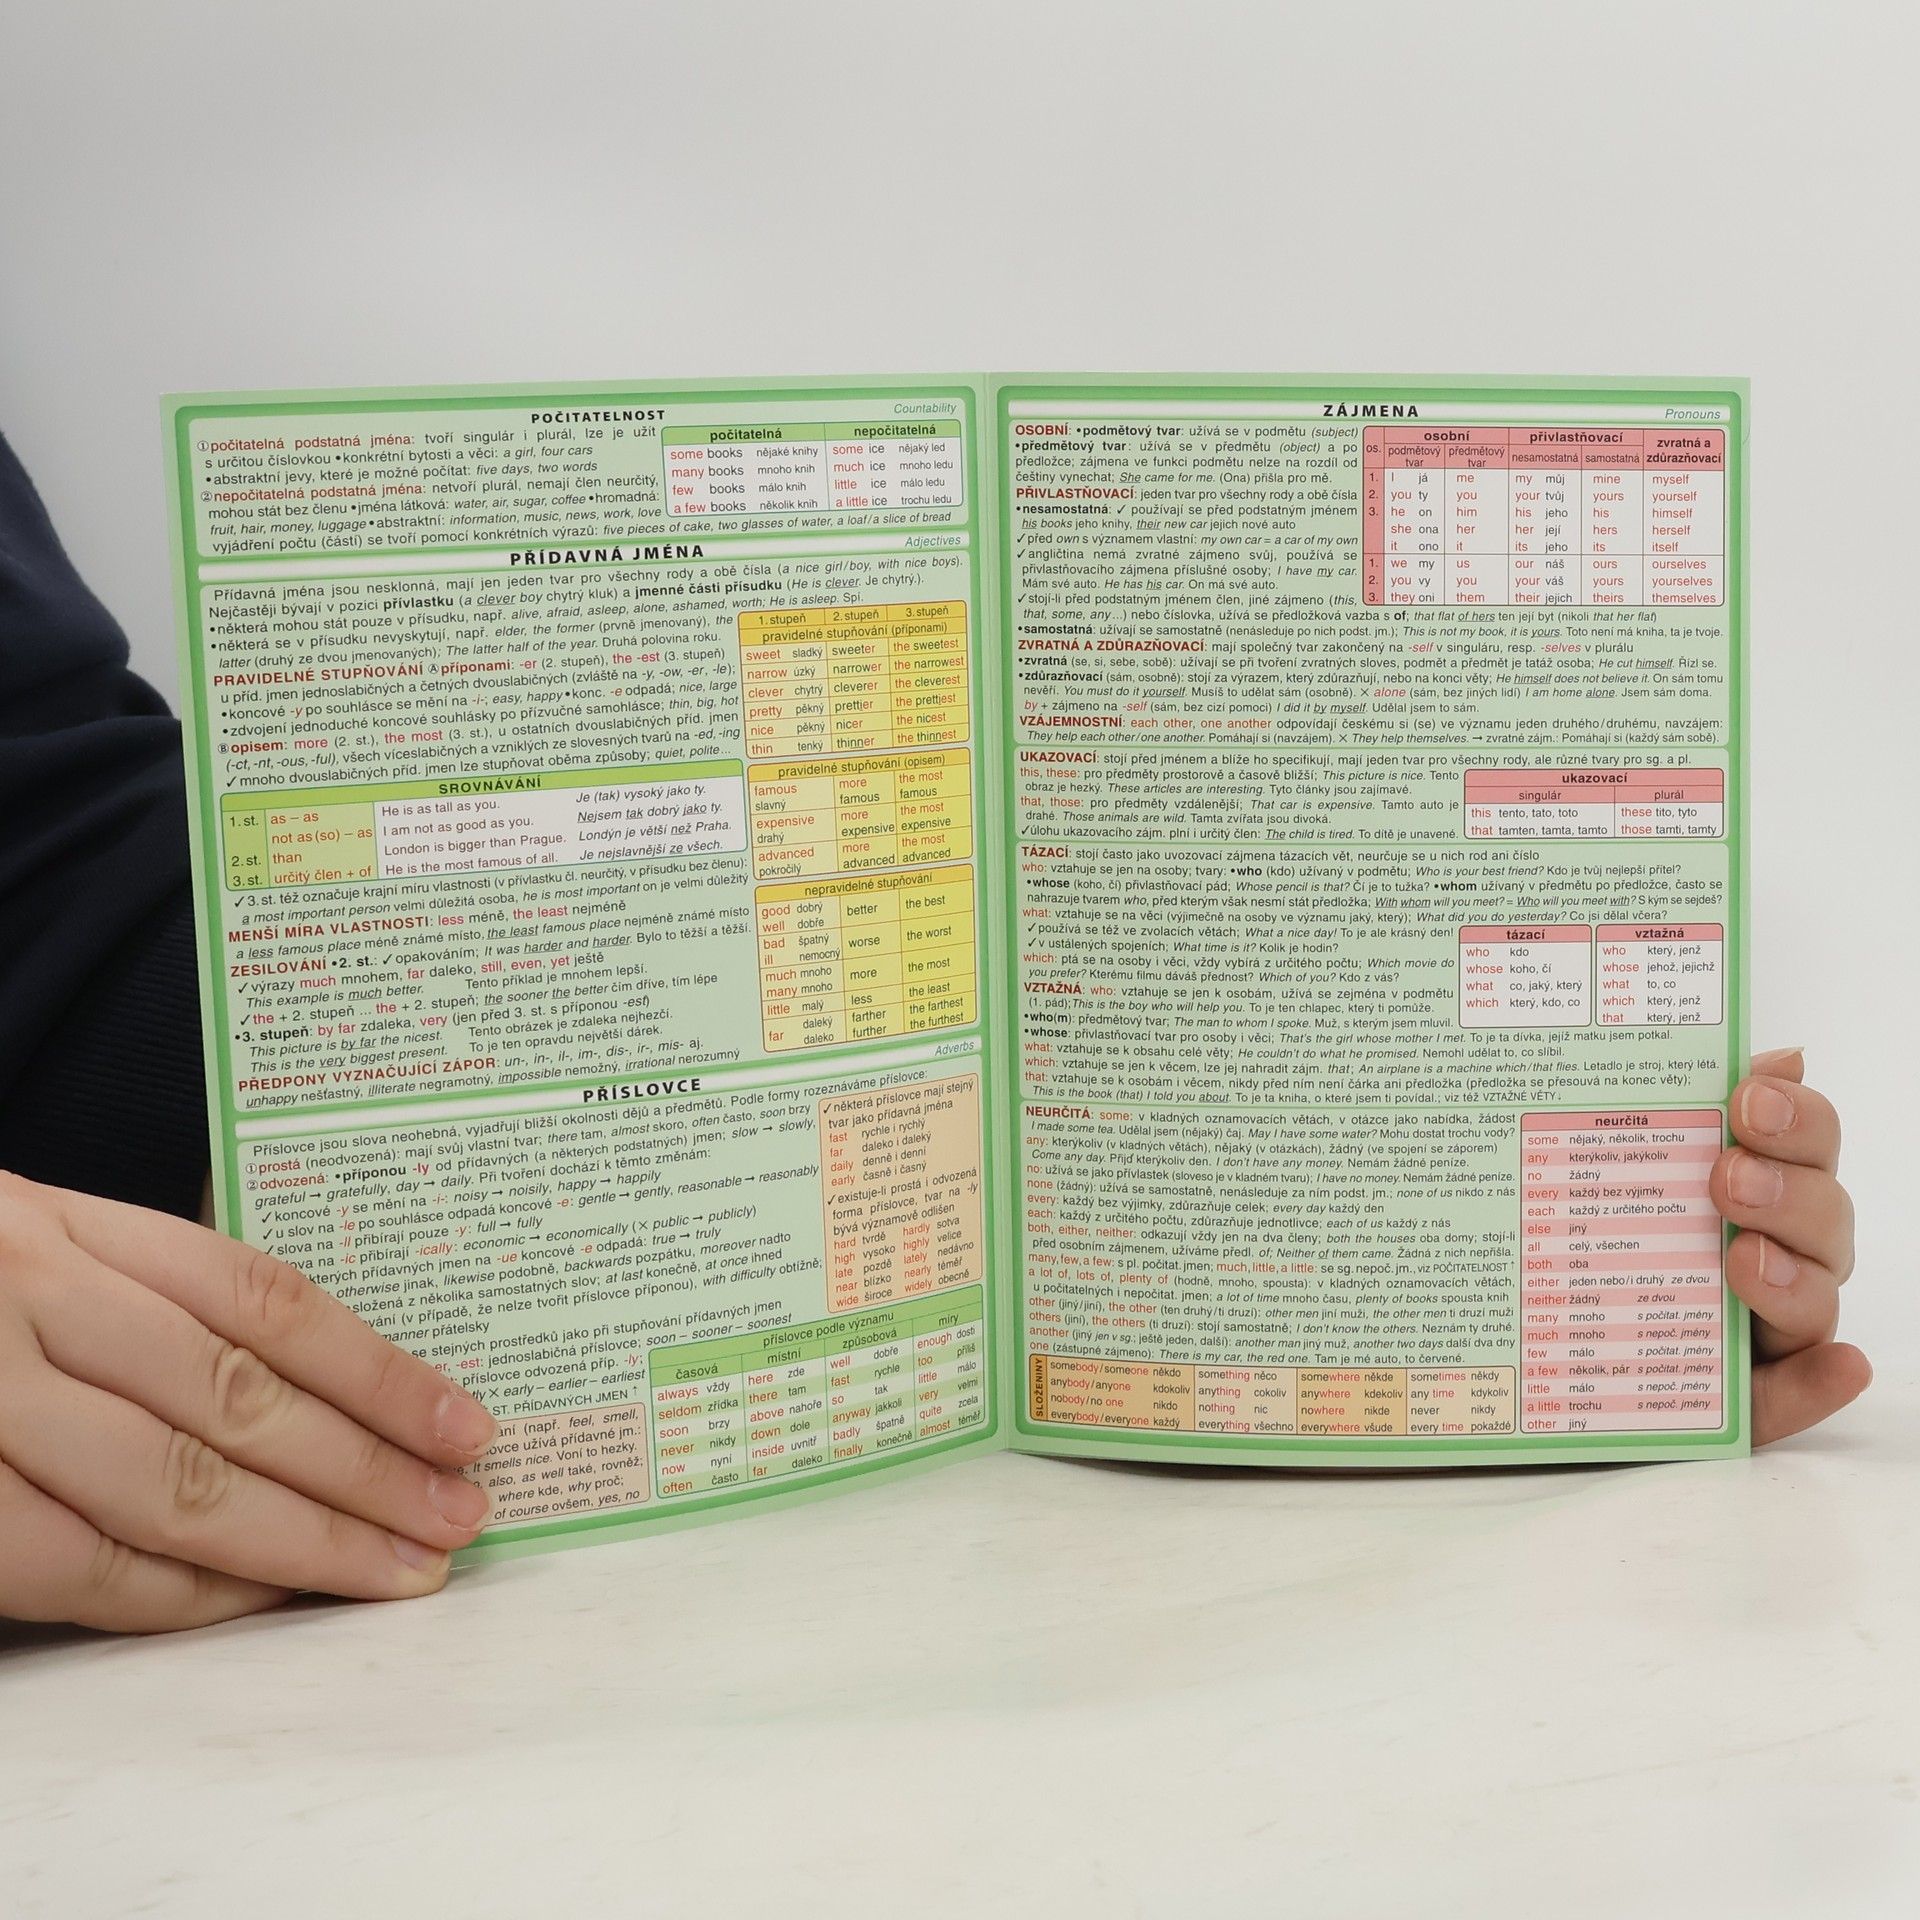 POČITATELNOST
Countability
①počitatelná podstatná jména: tvoří singulár i plurál, lze je užít
s určitou číslovkou •konkrétní bytosti a věci: a girl, four cars
•abstraktní jevy, které je možné počítat: five days, two words
②nepočitatelná podstatná jména: netvoří plurál, nemají člen neurčitý,
mohou stát bez členu •jména látková: water, air, sugar, coffee •hromadná:
fruit, hair, money, luggage •abstraktní: information, music, news, work, love
vyjádření počtu (částí) se tvoří pomocí konkrétních výrazů: five pieces of cake, two glasses of water, a loaf/a slice of bread
počitatelná nepočitatelná
some books nějaké knihy some ice nějaký led
many books mnoho knih much ice mnoho ledu
few books málo knih little ice málo ledu
a few books několik knih a little ice trochu ledu
PŘÍDAVNÁ JMÉNA
Adjectives
Přídavná jména jsou nesklonná, mají jen jeden tvar pro všechny rody a obě čísla (a nice girl/boy, with nice boys).
Nejčastěji bývají v pozici přívlastku (a clever boy chytrý kluk) a jmenné části přísudku (He is clever. Je chytrý.).
•některá mohou stát pouze v přísudku, např. alive, afraid, asleep, alone, ashamed, worth; He is asleep. Spí.
•některá se v přísudku nevyskytují, např. elder, the former (prvně jmenovaný), the
latter (druhý ze dvou jmenovaných); The latter half of the year. Druhá polovina roku.
PRAVIDELNÉ STUPŇOVÁNÍ Ⓐpříponami: -er (2. stupeň), the -est (3. stupeň)
u příd. jmen jednoslabičných a četných dvouslabičných (zvláště na -y, -ow, -er, -le);
•koncové -y po souhlásce se mění na -i-; easy, happy •konc. -e odpadá; nice, large
•zdvojení jednoduché koncové souhlásky po přízvučné samohlásce; thin, big, hot
Ⓑopisem: more (2. st.), the most (3. st.), u ostatních dvouslabičných příd. jmen
(-ct, -nt, -ous, -ful), všech víceslabičných a vzniklých ze slovesných tvarů na -ed, -ing
✓mnoho dvouslabičných příd. jmen lze stupňovat oběma způsoby; quiet, polite...
1. stupeň 2. stupeň 3. stupeň
pravidelné stupňování (příponami)
sweet sladký sweeter the sweetest
narrow úzký narrower the narrowest
clever chytrý cleverer the cleverest
pretty pěkný prettier the prettiest
nice pěkný nicer the nicest
thin tenký thinner the thinnest
pravidelné stupňování (opisem)
famous more the most
slavný famous famous
expensive more the most
drahý expensive expensive
advanced more the most
pokročilý advanced advanced
nepravidelné stupňování
good dobrý better the best
well dobře
bad špatný worse the worst
ill nemocný
much mnoho more the most
many mnoho
little malý less the least
far daleký farther the farthest
daleko further the furthest
SROVNÁVÁNÍ
1. st. as – as He is as tall as you. Je (tak) vysoký jako ty.
not as (so) – as I am not as good as you. Nejsem tak dobrý jako ty.
2. st. than London is bigger than Prague. Londýn je větší než Praha.
3. st. určitý člen + of He is the most famous of all. Je nejslavnější ze všech.
✓3. st. též označuje krajní míru vlastnosti (v přívlastku čl. neurčitý, v přísudku bez členu):
a most important person velmi důležitá osoba, he is most important on je velmi důležitý
MENŠÍ MÍRA VLASTNOSTI: less méně, the least nejméně
a less famous place méně známé místo, the least famous place nejméně známé místo
ZESILOVÁNÍ •2. st.: ✓opakováním; It was harder and harder. Bylo to těžší a těžší.
✓výrazy much mnohem, far daleko, still, even, yet ještě
This example is much better. Tento příklad je mnohem lepší.
✓the + 2. stupeň ... the + 2. stupeň; the sooner the better čím dříve, tím lépe
•3. stupeň: by far zdaleka, very (jen před 3. st. s příponou -est)
This picture is by far the nicest. Tento obrázek je zdaleka nejhezčí.
This is the very biggest present. To je ten opravdu největší dárek.
PŘEDPONY VYZNAČUJÍCÍ ZÁPOR: un-, in-, il-, im-, dis-, ir-, mis- aj.
unhappy nešťastný, illiterate negramotný, impossible nemožný, irrational nerozumný
PŘÍSLOVCE
Adverbs
Příslovce jsou slova neohebná, vyjadřují bližší okolnosti dějů a předmětů. Podle formy rozeznáváme příslovce:
①prostá (neodvozená): mají svůj vlastní tvar; there tam, almost skoro, often často, soon brzy
②odvozená: •příponou -ly od přídavných (a některých podstatných) jmen; slow → slowly,
grateful → gratefully, day → daily. Při tvoření dochází k těmto změnám:
✓koncové -y se mění na -i-: noisy → noisily, happy → happily
✓u slov na -le po souhlásce odpadá koncové -e: gentle → gently, reasonable → reasonably
✓slova na -ll přibírají pouze -y: full → fully
ova na -ic přibírají -ically: economic → economically (× public → publicly)
kterých přídavných jmen na -ue koncové -e odpadá: true → truly
, otherwise jinak, likewise podobně, backwards pozpátku, moreover nadto
složená z několika samostatných slov; at last konečně, at once ihned
vání (v případě, že nelze tvořit příslovce příponou), with difficulty obtížně;
manner přátelsky
se stejných prostředků jako při stupňování přídavných jmen
er, -est: jednoslabičná příslovce; soon – sooner – soonest
příslovce odvozená příp. -ly;
tly × early – earlier – earliest
ST. PŘÍDAVNÝCH JMEN ↑
ání (např. feel, smell,
ovce užívá přídavné jm.:
e. It smells nice. Voní to hezky.
, also, as well také, rovněž;
where kde, why proč;
of course ovšem, yes, no
✓některá příslovce mají stejný
tvar jako přídavná jména
fast rychle i rychlý
far daleko i daleký
daily denně i denní
early časně i časný
✓existuje-li prostá i odvozená
forma příslovce, tvar na -ly
bývá významově odlišen
hard tvrdě hardly sotva
high vysoko highly velice
late pozdě lately nedávno
near blízko nearly téměř
wide široce widely obecně
příslovce podle významu
časová místní způsobová míry
always vždy here zde well dobře enough dosti
seldom zřídka there tam fast rychle too příliš
soon brzy above nahoře so tak little málo
never nikdy down dole anyway jakkoli very velmi
now nyní inside uvnitř badly špatně quite zcela
often často far daleko finally konečně almost téměř
ZÁJMENA
Pronouns
OSOBNÍ: •podmětový tvar: užívá se v podmětu (subject)
•předmětový tvar: užívá se v předmětu (object) a po
předložce; zájmena ve funkci podmětu nelze na rozdíl od
češtiny vynechat; She came for me. (Ona) přišla pro mě.
PŘIVLASTŇOVACÍ: jeden tvar pro všechny rody a obě čísla
•nesamostatná: ✓ používají se před podstatným jménem
his books jeho knihy, their new car jejich nové auto
✓před own s významem vlastní: my own car = a car of my own
✓angličtina nemá zvratné zájmeno svůj, používá se
přivlastňovacího zájmena příslušné osoby; I have my car.
Mám své auto. He has his car. On má své auto.
✓stojí-li před podstatným jménem člen, jiné zájmeno (this,
that, some, any...) nebo číslovka, užívá se předložková vazba s of; that flat of hers ten její byt (nikoli that her flat)
•samostatná: užívají se samostatně (nenásleduje po nich podst. jm.); This is not my book, it is yours. Toto není má kniha, ta je tvoje.
os. osobní přivlastňovací zvratná a zdůrazňovací
podmětový tvar předmětový tvar nesamostatná samostatná
1. I já me my můj mine myself
2. you ty you your tvůj yours yourself
3. he on him his jeho his himself
she ona her her její hers herself
it ono it its jeho its itself
1. we my us our náš ours ourselves
2. you vy you your váš yours yourselves
3. they oni them their jejich theirs themselves
ZVRATNÁ A ZDŮRAZŇOVACÍ: mají společný tvar zakončený na -self v singuláru, resp. -selves v plurálu
•zvratná (se, si, sebe, sobě): užívají se při tvoření zvratných sloves, podmět a předmět je tatáž osoba; He cut himself. Řízl se.
•zdůrazňovací (sám, osobně): stojí za výrazem, který zdůrazňují, nebo na konci věty; He himself does not believe it. On sám tomu
nevěří. You must do it yourself. Musíš to udělat sám (osobně). × alone (sám, bez jiných lidí) I am home alone. Jsem sám doma.
by + zájmeno na -self (sám, bez cizí pomoci) I did it by myself. Udělal jsem to sám.
VZÁJEMNOSTNÍ: each other, one another odpovídají českému si (se) ve významu jeden druhého/druhému, navzájem:
They help each other/one another. Pomáhají si (navzájem). × They help themselves. → zvratné zájm.: Pomáhají si (každý sám sobě).
UKAZOVACÍ: stojí před jménem a blíže ho specifikují, mají jeden tvar pro všechny rody, ale různé tvary pro sg. a pl.
this, these: pro předměty prostorově a časově bližší; This picture is nice. Tento
obraz je hezký. These articles are interesting. Tyto články jsou zajímavé.
that, those: pro předměty vzdálenější; That car is expensive. Tamto auto je
drahé. Those animals are wild. Tamta zvířata jsou divoká.
✓úlohu ukazovacího zájm. plní i určitý člen: The child is tired. To dítě je unavené.
ukazovací
singulár plurál
this tento, tato, toto these tito, tyto
that tamten, tamta, tamto those tamti, tamty
TÁZACÍ: stojí často jako uvozovací zájmena tázacích vět, neurčuje se u nich rod ani číslo
who: vztahuje se jen na osoby; tvary: •who (kdo) užívaný v podmětu; Who is your best friend? Kdo je tvůj nejlepší přítel?
•whose (koho, čí) přivlastňovací pád; Whose pencil is that? Čí je to tužka? •whom užívaný v předmětu po předložce, často se
nahrazuje tvarem who, před kterým však nesmí stát předložka; With whom will you meet? = Who will you meet with? S kým se sejdeš?
what: vztahuje se na věci (výjimečně na osoby ve významu jaký, který); What did you do yesterday? Co jsi dělal včera?
✓používá se též ve zvolacích větách; What a nice day! To je ale krásný den!
✓v ustálených spojeních; What time is it? Kolik je hodin?
which: ptá se na osoby i věci, vždy vybírá z určitého počtu; Which movie do
you prefer? Kterému filmu dáváš přednost? Which of you? Kdo z vás?
tázací
who kdo
whose koho, čí
what co, jaký, který
which který, kdo, co
vztažná
who který, jenž
whose jehož, jejichž
what to, co
which který, jenž
that který, jenž
VZTAŽNÁ: who: vztahuje se jen k osobám, užívá se zejména v podmětu
(1. pád); This is the boy who will help you. To je ten chlapec, který ti pomůže.
•who(m): předmětový tvar; The man to whom I spoke. Muž, s kterým jsem mluvil.
•whose: přivlastňovací tvar pro osoby i věci; That's the girl whose mother I met. To je ta dívka, jejíž matku jsem potkal.
what: vztahuje se k obsahu celé věty; He couldn't do what he promised. Nemohl udělat to, co slíbil.
which: vztahuje se jen k věcem, lze jej nahradit zájm. that; An airplane is a machine which/that flies. Letadlo je stroj, který létá.
that: vztahuje se k osobám i věcem, nikdy před ním není čárka ani předložka (předložka se přesouvá na konec věty);
This is the book (that) I told you about. To je ta kniha, o které jsem ti povídal.; viz též VZTAŽNÉ VĚTY↓
NEURČITÁ: some: v kladných oznamovacích větách, v otázce jako nabídka, žádost
I made some tea. Udělal jsem (nějaký) čaj. May I have some water? Mohu dostat trochu vody?
any: kterýkoliv (v kladných větách), nějaký (v otázkách), žádný (ve spojení se záporem)
Come any day. Přijď kterýkoliv den. I don't have any money. Nemám žádné peníze.
no: užívá se jako přívlastek (sloveso je v kladném tvaru); I have no money. Nemám žádné peníze.
none (žádný): užívá se samostatně, nenásleduje za ním podst. jm.; none of us nikdo z nás
every: každý bez výjimky, zdůrazňuje celek; every day každý den
each: každý z určitého počtu, zdůrazňuje jednotlivce; each of us každý z nás
both, either, neither: odkazují vždy jen na dva členy; both the houses oba domy; stojí-li
před osobním zájmenem, užíváme předl. of; Neither of them came. Žádná z nich nepřišla.
many, few, a few: s pl. počitat. jmen; much, little, a little: se sg. nepoč. jm., viz POČITATELNOST ↑
a lot of, lots of, plenty of (hodně, mnoho, spousta): v kladných oznamovacích větách,
u počitatelných i nepočitat. jmen; a lot of time mnoho času, plenty of books spousta knih
other (jiný/jiní), the other (ten druhý/ti druzí): other men jiní muži, the other men ti druzí muži
others (jiní), the others (ti druzí): stojí samostatně; I don't know the others. Neznám ty druhé.
another (jiný jen v sg.; ještě jeden, další): another man jiný muž, another two days další dva dny
one (zástupné zájmeno): There is my car, the red one. Tam je mé auto, to červené.
neurčitá
some nějaký, několik, trochu
any kterýkoliv, jakýkoliv
no žádný
every každý bez výjimky
each každý z určitého počtu
else jiný
all celý, všechen
both oba
either jeden nebo/i druhý ze dvou
neither žádný ze dvou
many mnoho s počitat. jmény
much mnoho s nepoč. jmény
few málo s počitat. jmény
a few několik, pár s počitat. jmény
little málo s nepoč. jmény
a little trochu s nepoč. jmény
other jiný
SLOŽENINY
somebody/someone někdo something něco somewhere někde sometimes někdy
anybody/anyone kdokoliv anything cokoliv anywhere kdekoliv any time kdykoliv
nobody/no one nikdo nothing nic nowhere nikde never nikdy
everybody/everyone každý everything všechno everywhere všude every time pokaždé